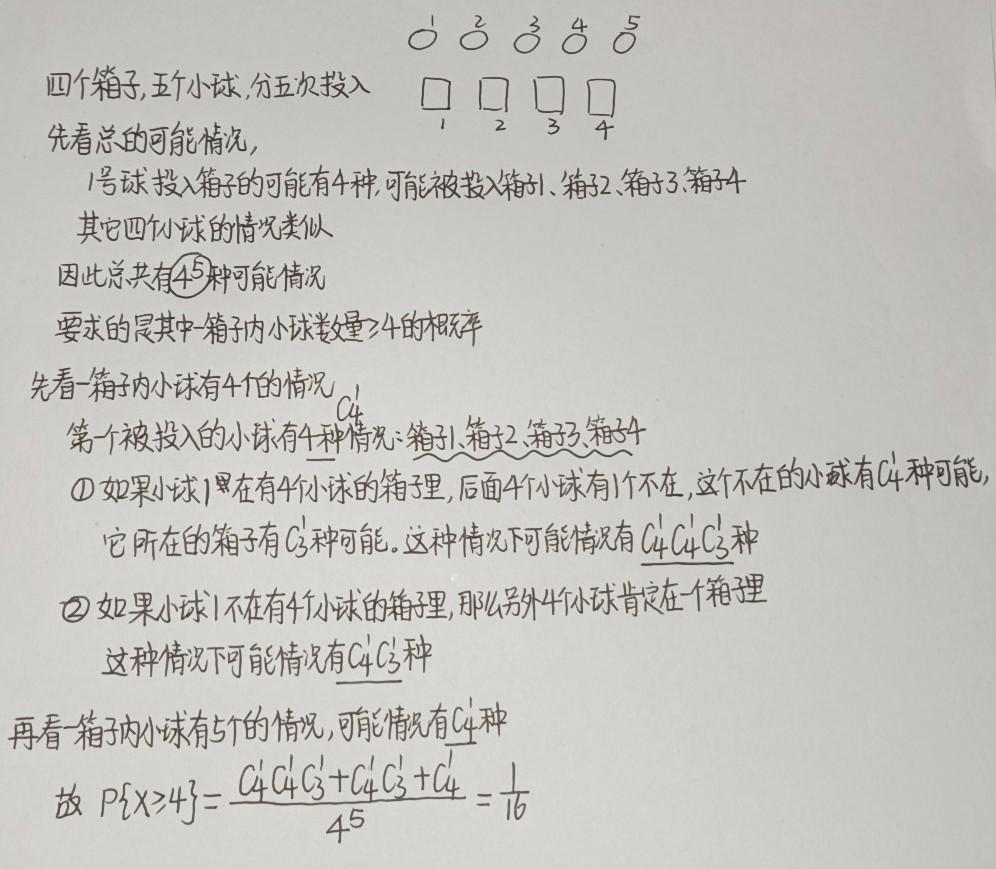 1 2 3 4 5
四个箱子,五个小球,分五次投入
1 2 3 4
先看总的可能情况,
1号球投入箱子的可能有4种,可能被投入箱子1、箱子2、箱子3、箱子4
其它四个小球的情况类似
因此总共有4⁵种可能情况
要求的是其中一箱子内小球数量≥4的概率
先看一箱子内小球有4个的情况
C₄¹
第一个被投入的小球有4种情况:箱子1、箱子2、箱子3、箱子4
①如果小球1在有4个小球的箱子里,后面4个小球有1个不在,这个不在的小球有C₄¹种可能,
它所在的箱子有C₃¹种可能。这种情况下可能情况有C₄¹C₄¹C₃¹种
②如果小球1不在有4个小球的箱子里,那么另外4个小球肯定在一个箱子里
这种情况下可能情况有C₄¹C₃¹种
再看一箱子内小球有5个的情况,可能情况有C₄¹种
故 P{X≥4}=(C₄¹C₄¹C₃¹+C₄¹C₃¹+C₄¹)/4⁵=1/16